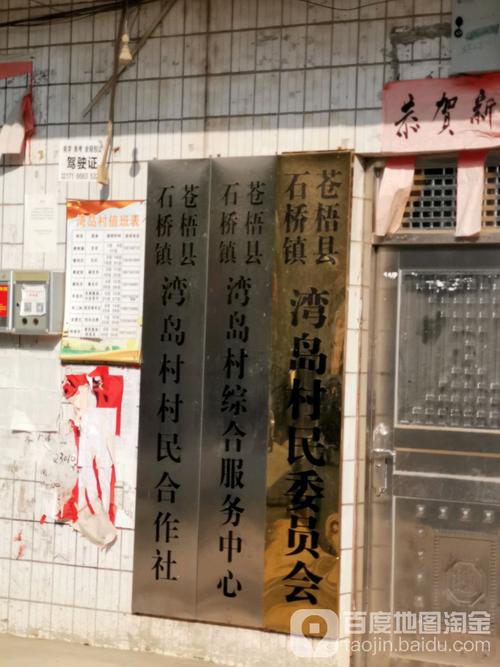 恭贺新
驾驶证
湾岛村值班表
苍梧县
石桥镇
湾岛村村民合作社
苍梧县
石桥镇
湾岛村综合服务中心
苍梧县
石桥镇
湾岛村民委员会
百度地图淘金
taojin.baidu.com